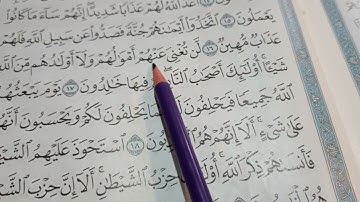 يَعْمَلُونَ ١٥ ٱتَّخَذُوٓا۟ أَيْمَـٰنَهُمْ جُنَّةً فَصَدُّوا۟ عَن سَبِيلِ ٱللَّهِ فَلَهُمْ
عَذَابٌ مُّهِينٌ ١٦ لَّن تُغْنِىَ عَنْهُمْ أَمْوَٰلُهُمْ وَلَآ أَوْلَـٰدُهُم مِّنَ ٱللَّهِ
شَيْـًٔا ۚ أُو۟لَـٰٓئِكَ أَصْحَـٰبُ ٱلنَّارِ ۖ فِيهَا خَـٰلِدُونَ ١٧ يَوْمَ يَبْعَثُهُمُ
ٱللَّهُ جَمِيعًا فَيَحْلِفُونَ يَحْلِفُونَ لَكُمْ ۖ وَيَحْسَبُونَ أَنَّهُمْ
عَلَىٰ شَىْءٍ ۚ أَلَآ إِنَّهُمْ هُمُ ١٨ ٱسْتَحْوَذَ عَلَيْهِمُ
فَأَنسَىٰهُمْ ذِكْرَ ٱللَّهِ ۚ حِزْبُ ٱلشَّيْطَـٰنِ ۚ أَلَآ إِنَّ حِزْبَ